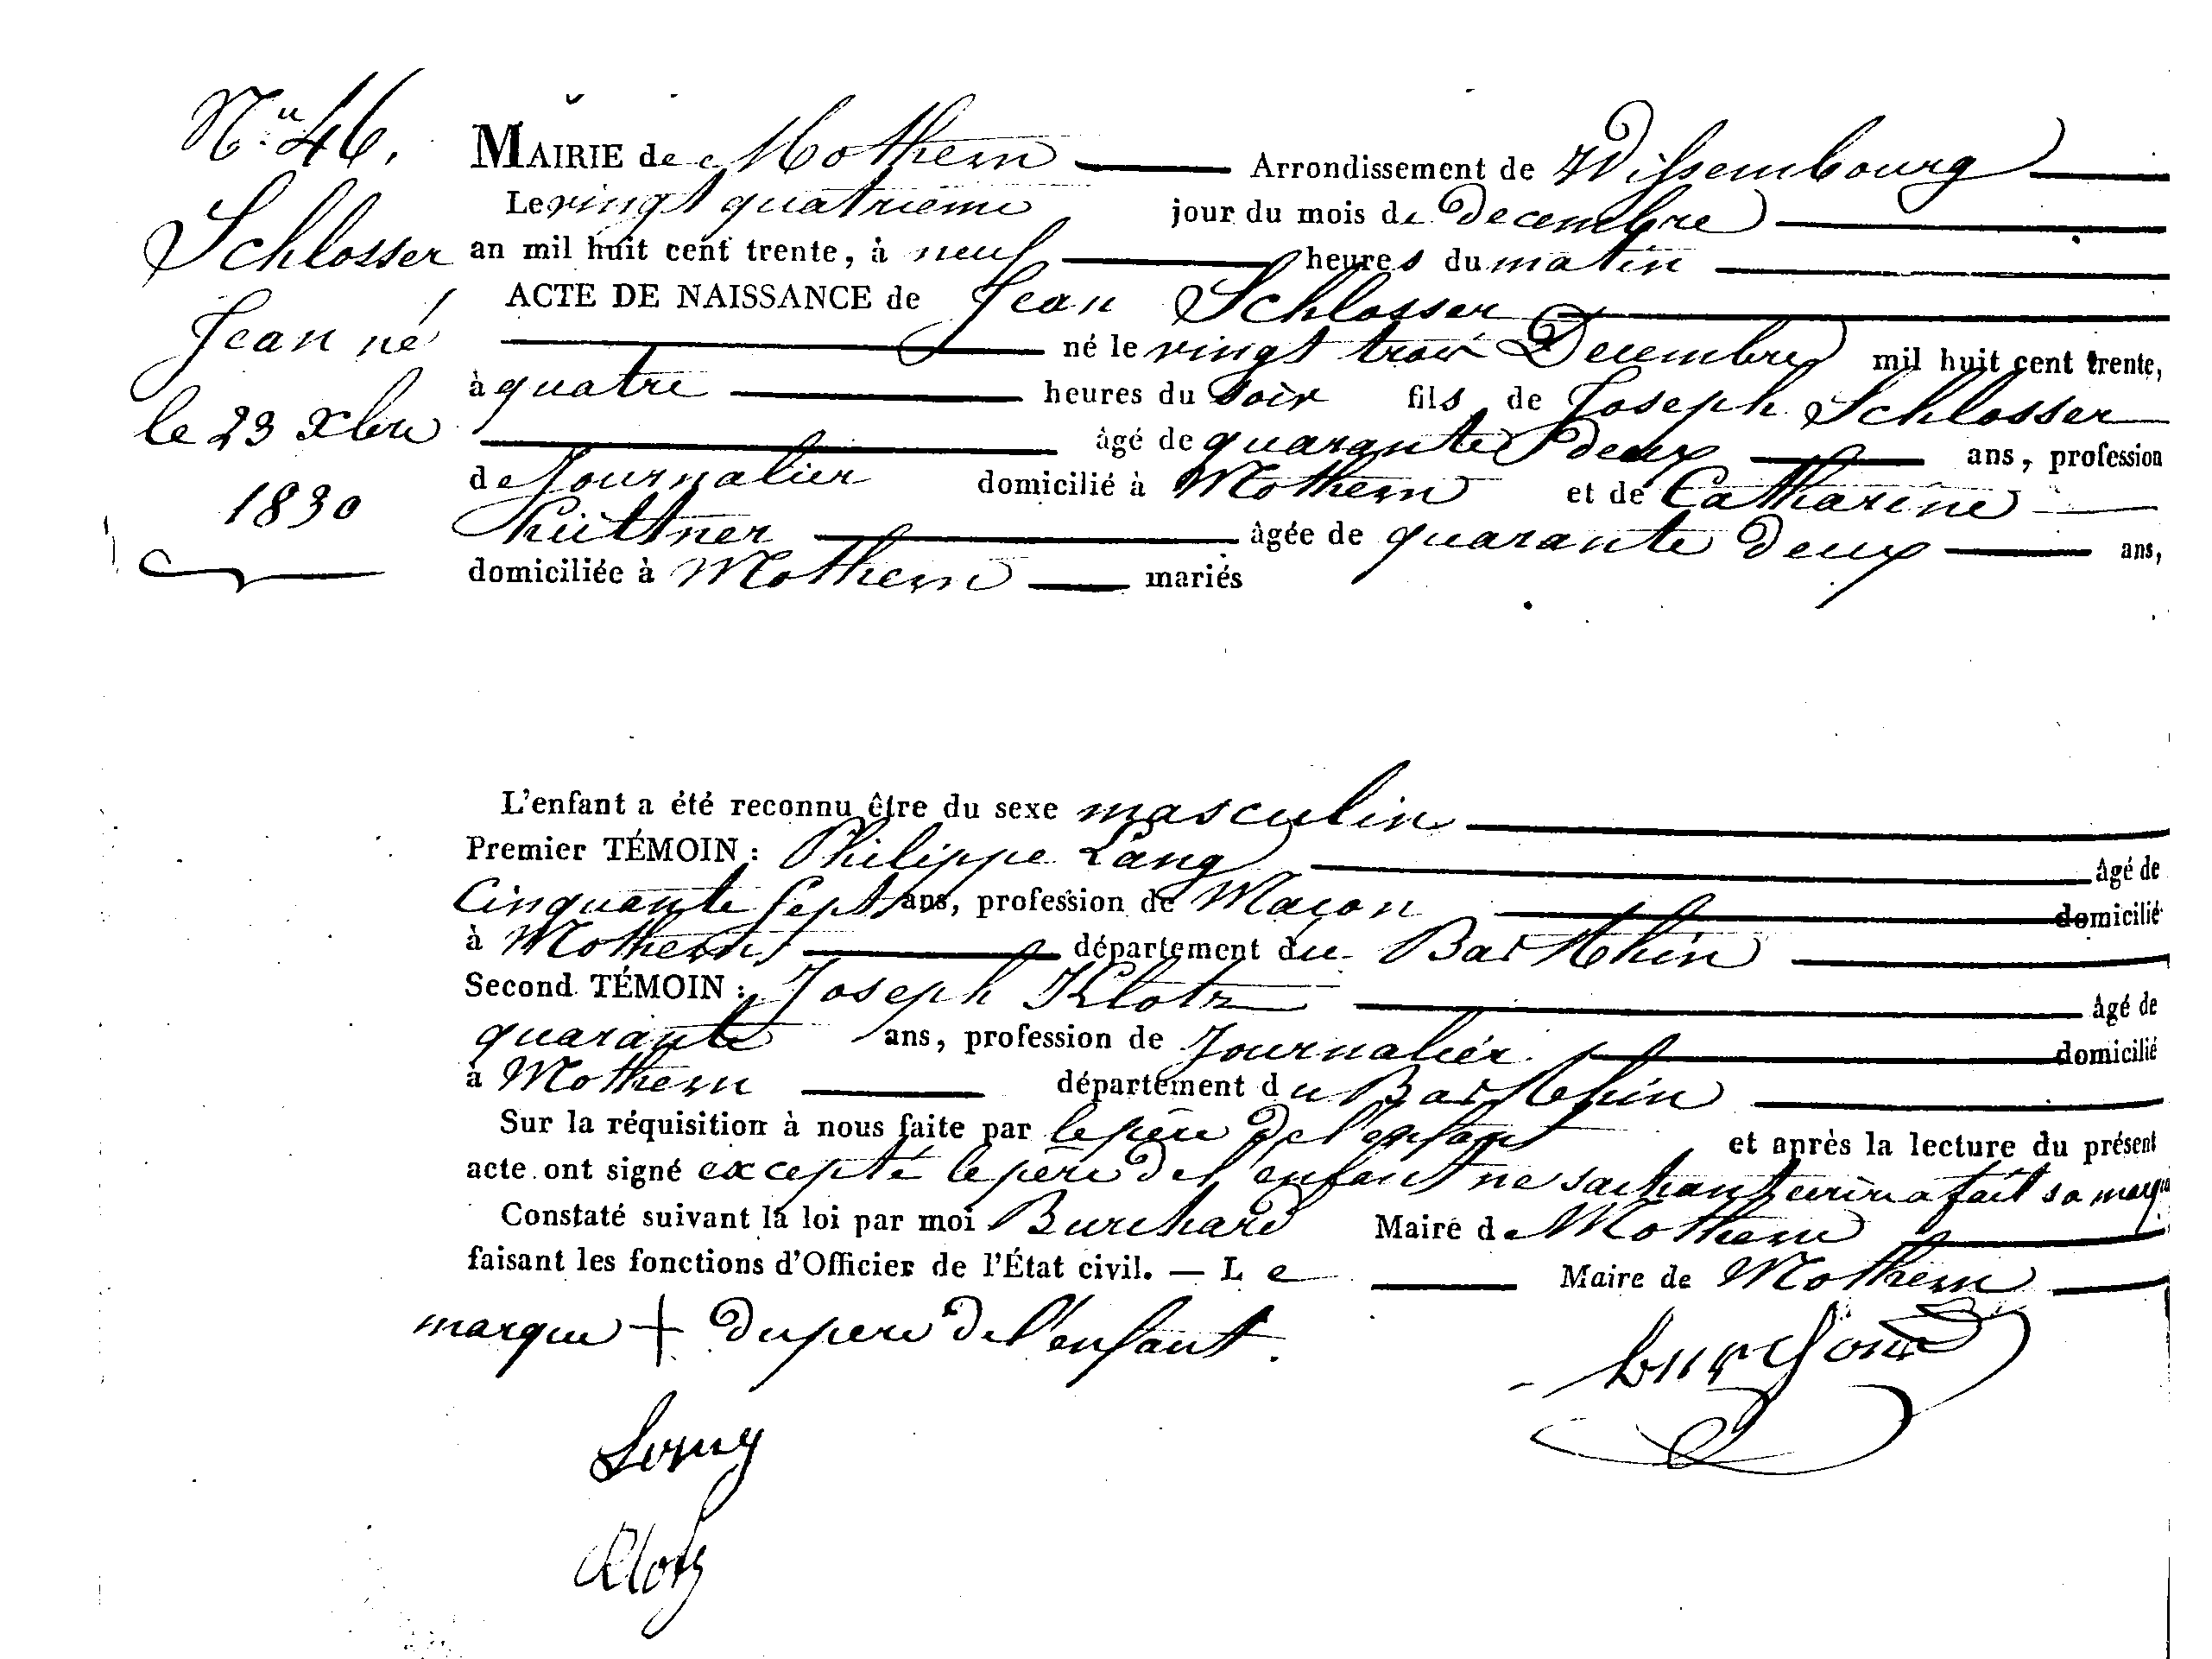 N.o 46.
Schlosser
Jean né
le 23 xbre
1830
MAIRIE de Mothern Arrondissement de Wissembourg
Le vingt quatrieme jour du mois de Decembre
an mil huit cent trente, à neuf heures du matin
ACTE DE NAISSANCE de Jean Schlosser
né le vingt trois Decembre mil huit cent trente,
à quatre heures du soir fils de Joseph Schlosser
âgé de quarante deux ans, profession
de Journalier domicilié à Mothern et de Catharine
âgée de quarante deux ans,
domiciliée à Mothern mariés
L'enfant a été reconnu être du sexe masculin
Premier TÉMOIN : Philippe Lang âgé de
Cinquante Sept ans, profession de Maçon domicilié
à Mothern département du Bas Rhin
Second TÉMOIN : Joseph Klotz âgé de
quarante ans, profession de Journalier domicilié
à Mothern département du Bas Rhin
Sur la réquisition à nous faite par le père de l'enfant et après la lecture du présent
acte ont signé excepté le père de l'enfant ne sachant ecrire a fait sa marque
Constaté suivant la loi par moi Burchard Maire de Mothern
faisant les fonctions d'Officier de l'État civil. — Le Maire de Mothern
marque + du pere de l'enfant.
Burchard
Lang
Klotz